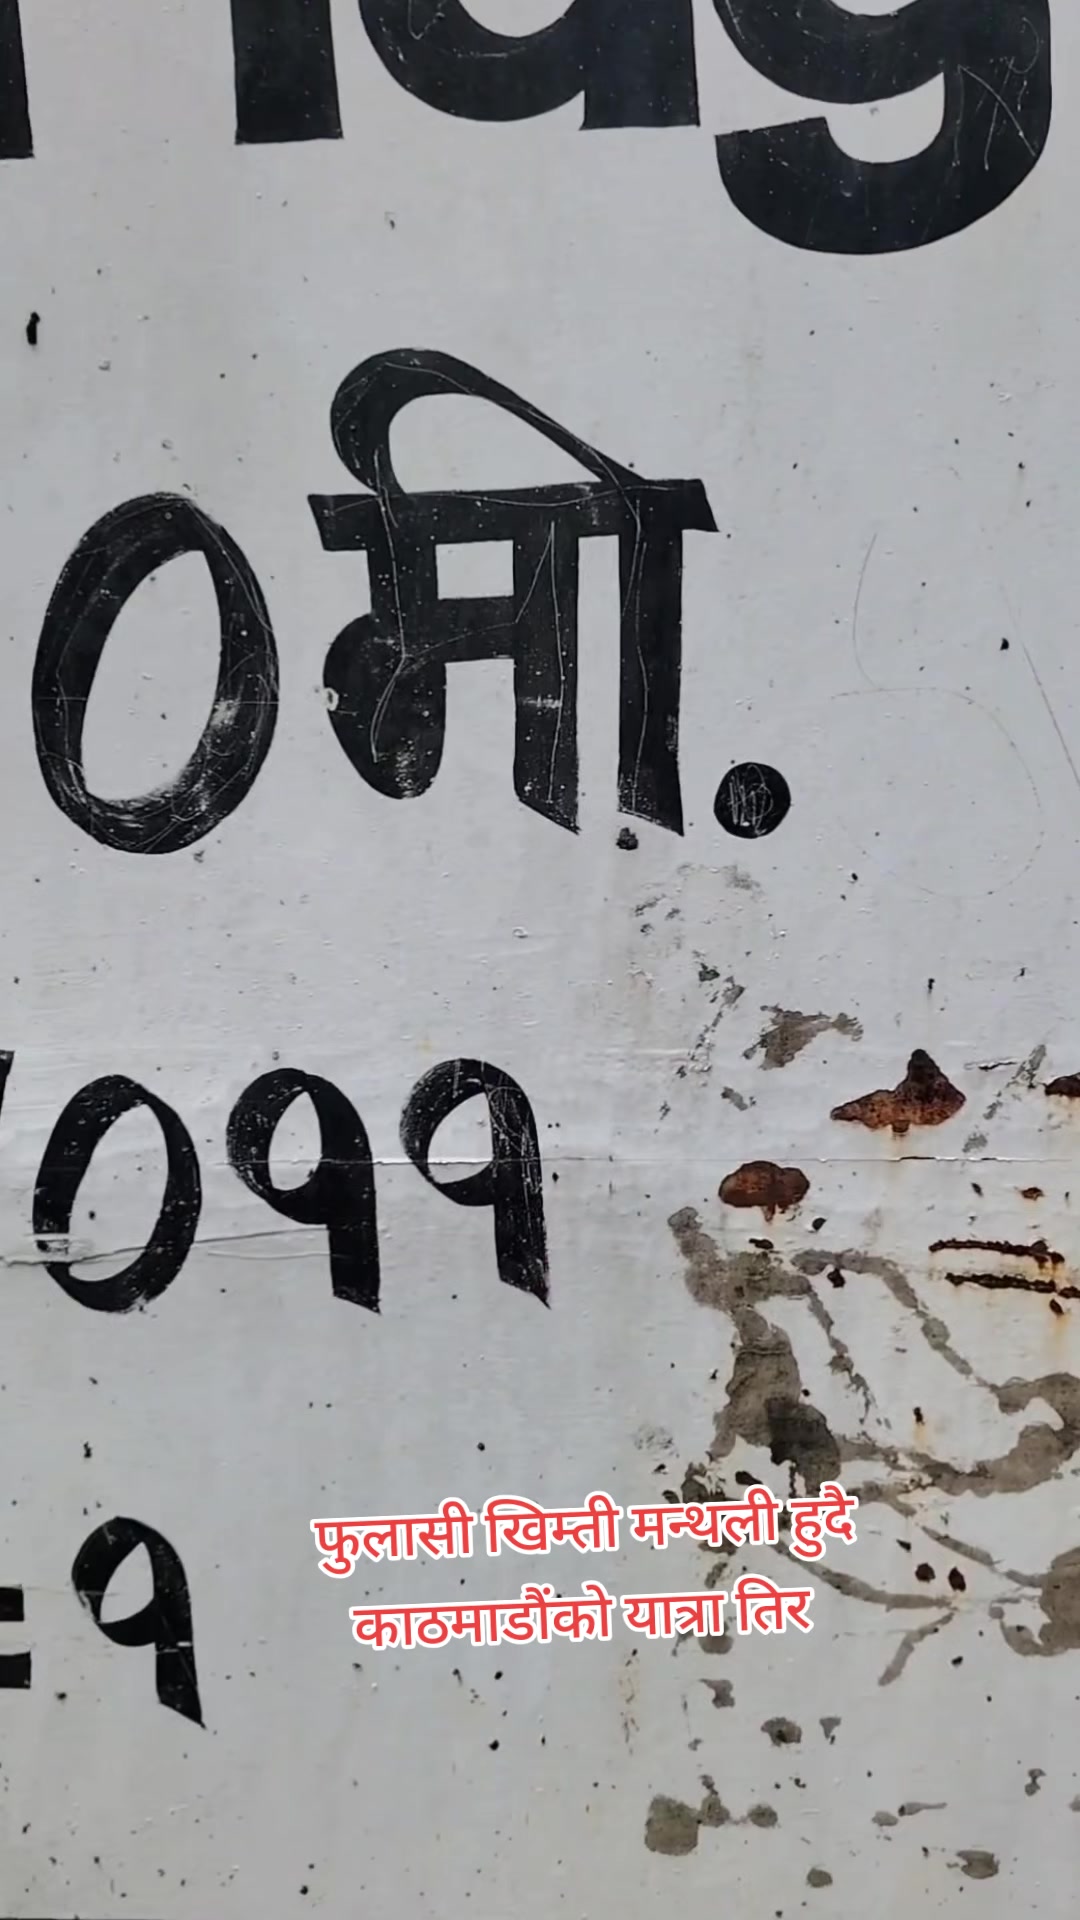 ०मी.
०११
=१
फुलासी खिम्ती मन्थली हुदै
काठमाडौंको यात्रा तिर